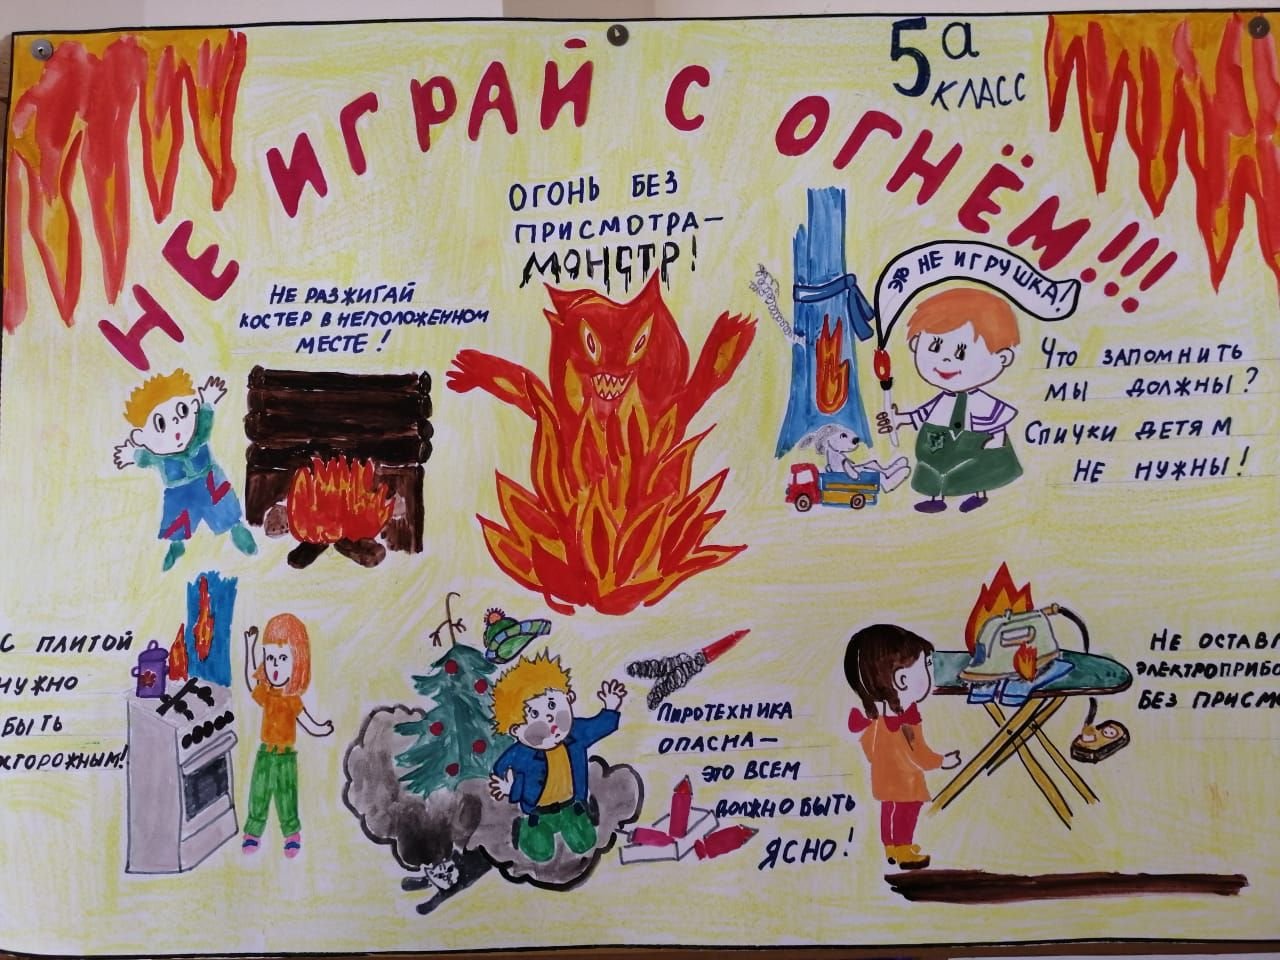 5а
КЛАСС
НЕ ИГРАЙ С ОГНЁМ!!!
ОГОНЬ БЕЗ
ПРИСМОТРА—
МОНСТР!
НЕ РАЗЖИГАЙ
КОСТЕР В НЕПОЛОЖЕННОМ
МЕСТЕ!
ЭТО НЕ ИГРУШКА!
ЧТО ЗАПОМНИТЬ
МЫ ДОЛЖНЫ?
СПИЧКИ ДЕТЯМ
НЕ НУЖНЫ!
С ПЛИТОЙ
НУЖНО
БЫТЬ
ОСТОРОЖНЫМ!
ПИРОТЕХНИКА
ОПАСНА—
ЭТО ВСЕМ
ДОЛЖНО БЫТЬ
ЯСНО!
НЕ ОСТАВЛ
ЭЛЕКТРОПРИБО
БЕЗ ПРИСМ